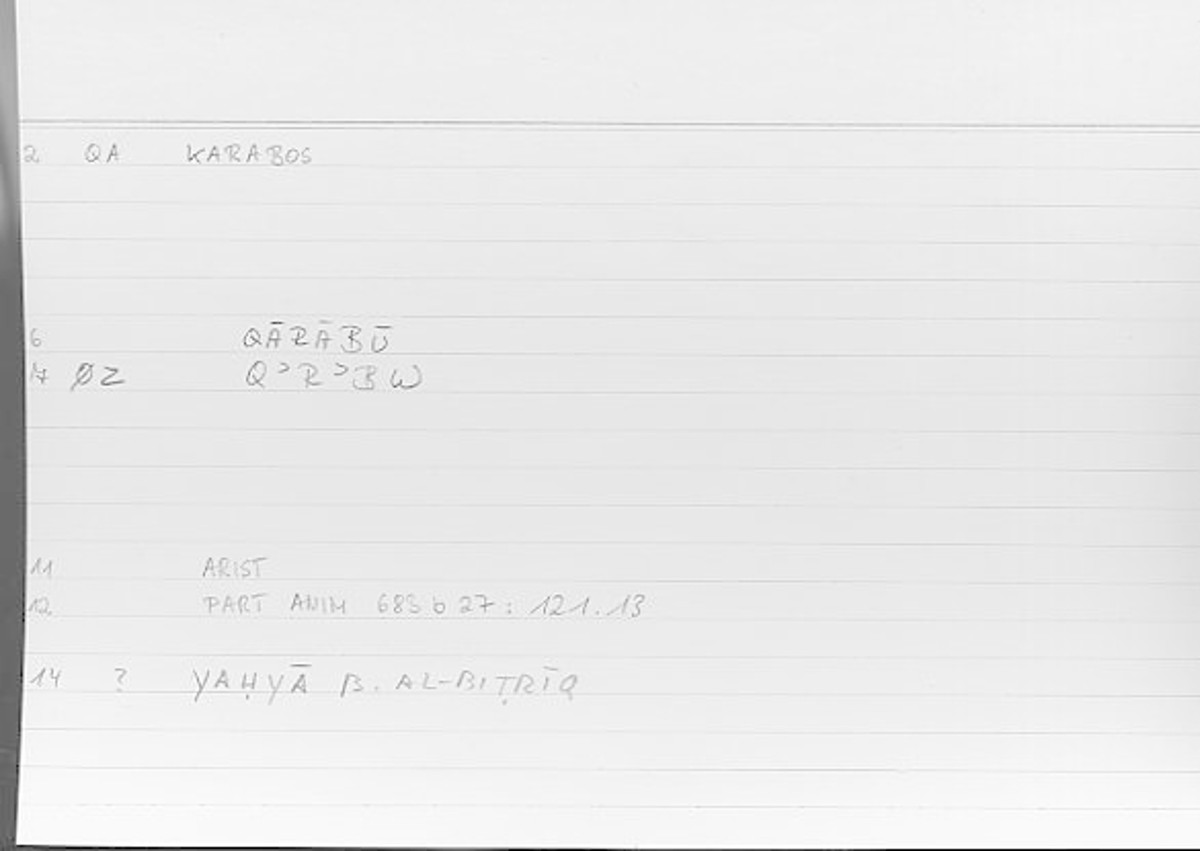 2 QA KARABOS
6 QĀRĀBŪ
7 ØZ Q᾿R᾿BW
11 ARIST
12 PART ANIM 683 b 27 : 121.13
14 ? YAḤYĀ B. AL-BIṬRĪQ